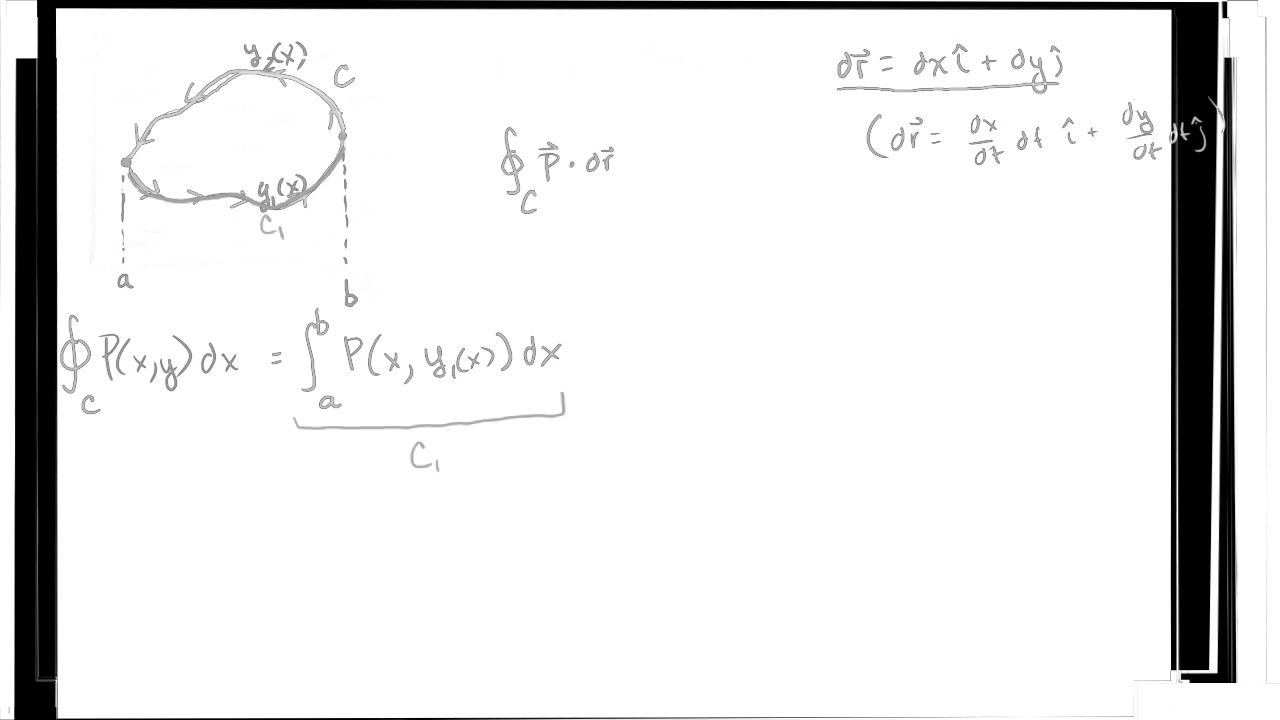 y₂(x)
C
y₁(x)
C₁
a
b
∮_C P⃗ · dr⃗
dr⃗ = dx î + dy ĵ
(dr⃗ = dx/dt dt î + dy/dt dt ĵ)
∮_C P(x,y) dx = ∫_a^b P(x, y₁(x)) dx
C₁